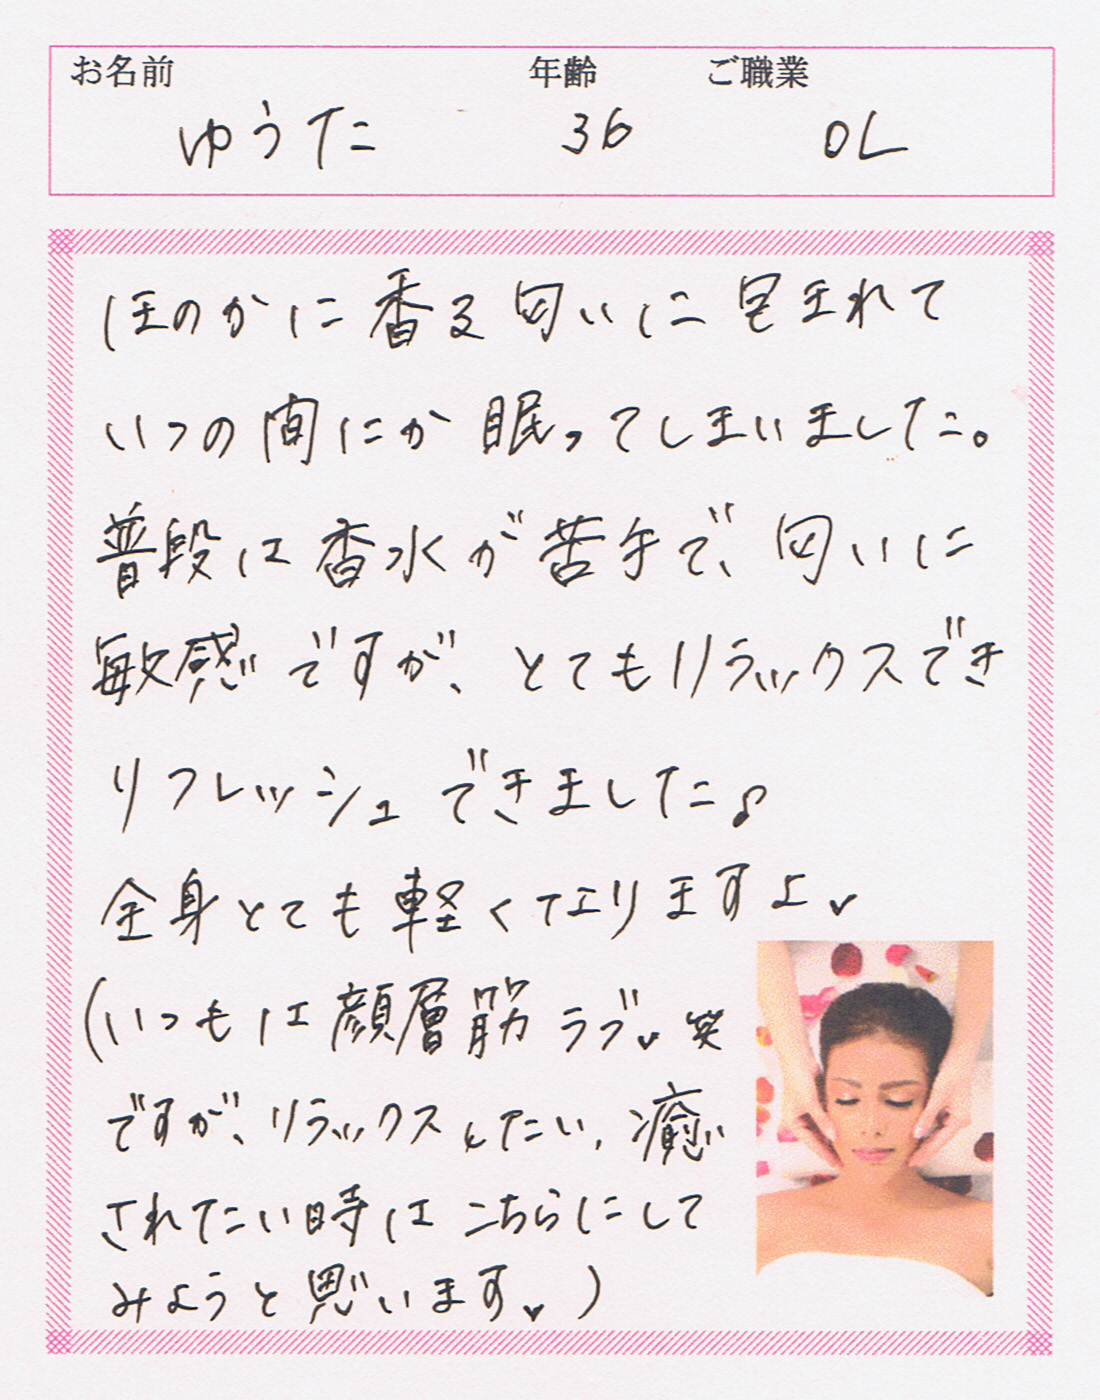 お名前 年齢 ご職業
ゆうた 36 OL
ほのかに香る匂いに包まれて
いつの間にか眠ってしまいました。
普段は香水が苦手で、匂いに
敏感ですが、とてもリラックスでき
リフレッシュできました♪
全身とても軽くなりますよ♥
(いつもは顔層筋ラブ♥笑
ですが、リラックスしたい、癒
されたい時はこちらにして
みようと思います♥)